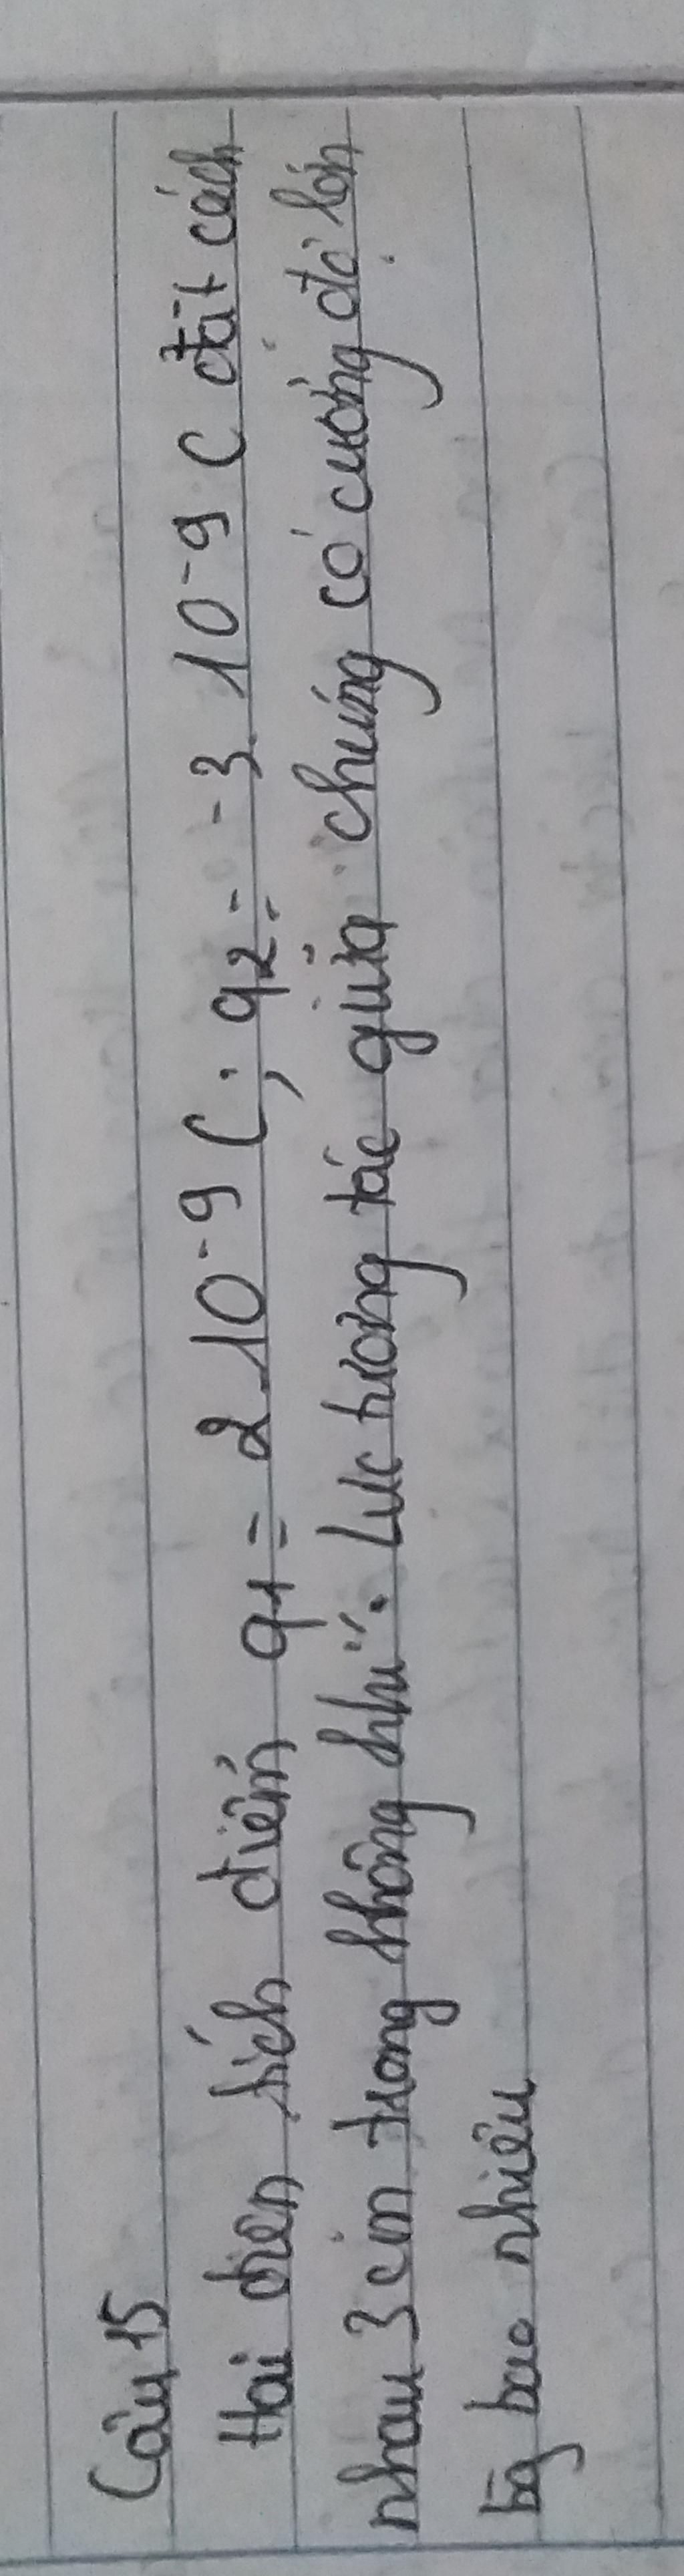 Câu 15
Hai điện tích điểm q1 = 2.10-9 C; q2 = -3.10-9 C đặt cách
nhau 3cm trong không khí. Lực tương tác giữa chúng có cường độ lớn
bg bao nhiêu